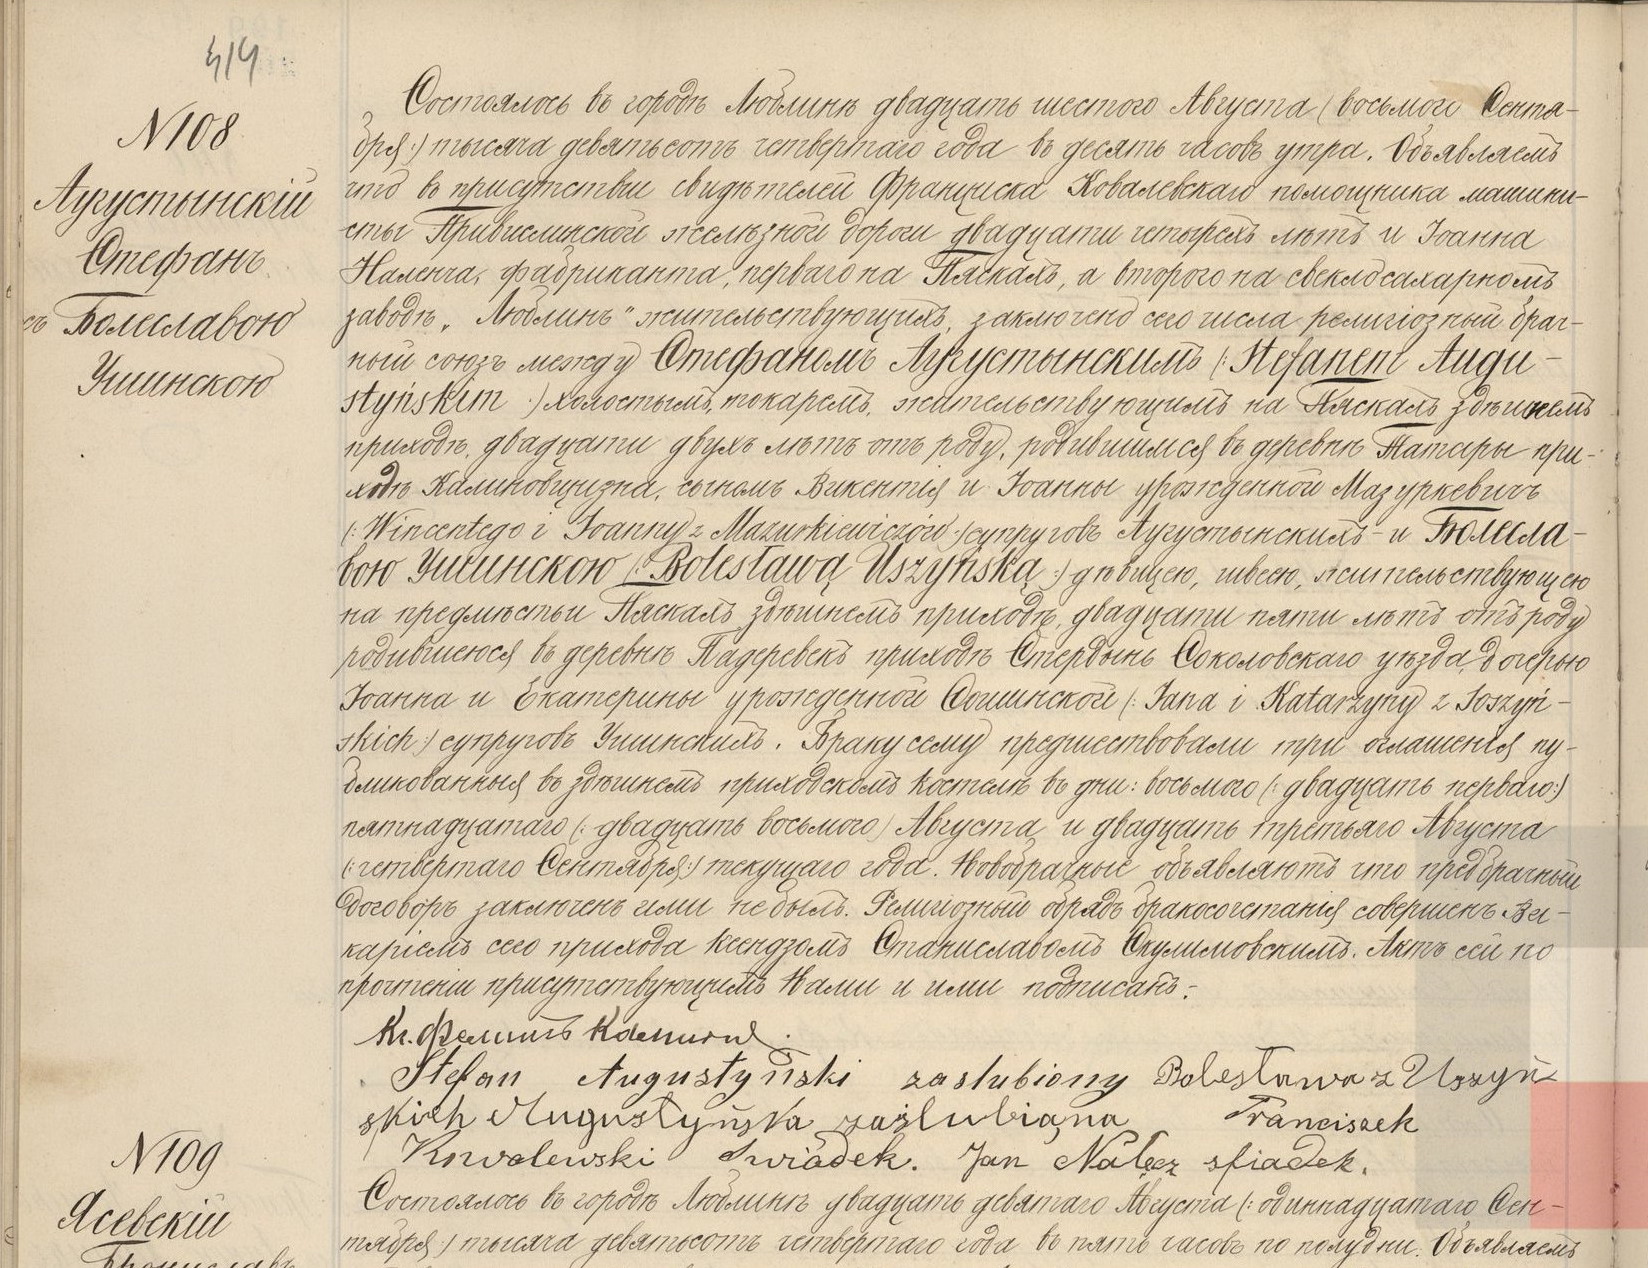 414
№108
Аугустынскій
Стефанъ
съ Болеславою
Ушинскою
Состоялось въ городѣ Люблинѣ двадцать шестого Августа (восьмого Сентя-
бря:) тысяча девятьсотъ четвертаго года въ десять часовъ утра. Объявляемъ
что въ присутствіи свидѣтелей Франциска Ковалевскаго помощника машини-
сты Привислинской желѣзной дороги двадцати четырехъ лѣтъ и Іоанна
Наленча, фабриканта, перваго на Пяскахъ, а второго на свеклосахарномъ
заводѣ „Люблинъ" жительствующихъ, заключенъ сего числа религіозный брач-
ный союзъ между Стефаномъ Аугустынскимъ (:Stefanem Augu-
styńskim:) холостымъ, токаремъ, жительствующимъ на Пяскахъ здѣшнемъ
приходѣ, двадцати двухъ лѣтъ отъ роду, родившимся въ деревнѣ Татары при-
ходѣ Калиновщизна, сыномъ Викентія и Іоанны урожденной Мазуркевичъ
(:Wincentego i Joanny z Mazurkiewiczów:) супруговъ Аугустынскихъ – и Болесла-
вою Ушинскою (:Bolesławą Uszyńską:) дѣвицею, швеею, жительствующею
на предмѣстьи Пяскахъ здѣшнемъ приходѣ, двадцати пяти лѣтъ отъ роду
родившеюся въ деревнѣ Падеревекъ приходѣ Стердынь Соколовскаго уѣзда, дочерью
Іоанна и Екатерины урожденной Сошинской (:Jana i Katarzyny z Soszyń-
skich:) супруговъ Ушинскихъ. Браку сему предшествовали три оглашенія пу-
бликованныя въ здѣшнемъ приходскомъ костелѣ въ дни: восьмого (:двадцать перваго:)
пятнадцатаго (:двадцать восьмого) Августа и двадцать третьяго Августа
(:четвертаго Сентября:) текущаго года. Новобрачные объявляютъ что предбрачный
договоръ заключенъ ими не былъ. Религіозный обрядъ бракосочетанія совершенъ Ви-
каріемъ сего прихода Ксендзомъ Станиславомъ Скулимовскимъ. Актъ сей по
прочтеніи присутствующимъ Нами и ими подписанъ.
Кс. Феликсъ
Stefan Augustyński zaslubiony Bolesława z Uszyń
skich Augustyńska zaślubiona Franciszek
Kowalewski Swiadek. Jan Nałęcz sfiadek.
№109
Ясевскій
Брониславъ
Состоялось въ городѣ Люблинѣ двадцать девятаго Августа (:одиннадцатаго Сен-
тября:) тысяча девятьсотъ четвертаго года въ пять часовъ по полудни. Объявляемъ